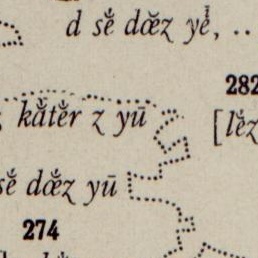 d sḗ dœ̆́z yé̜, ..
282
kắtĕ́r z yū
[lĕ́z
sḗ dœ̆́z yū
274